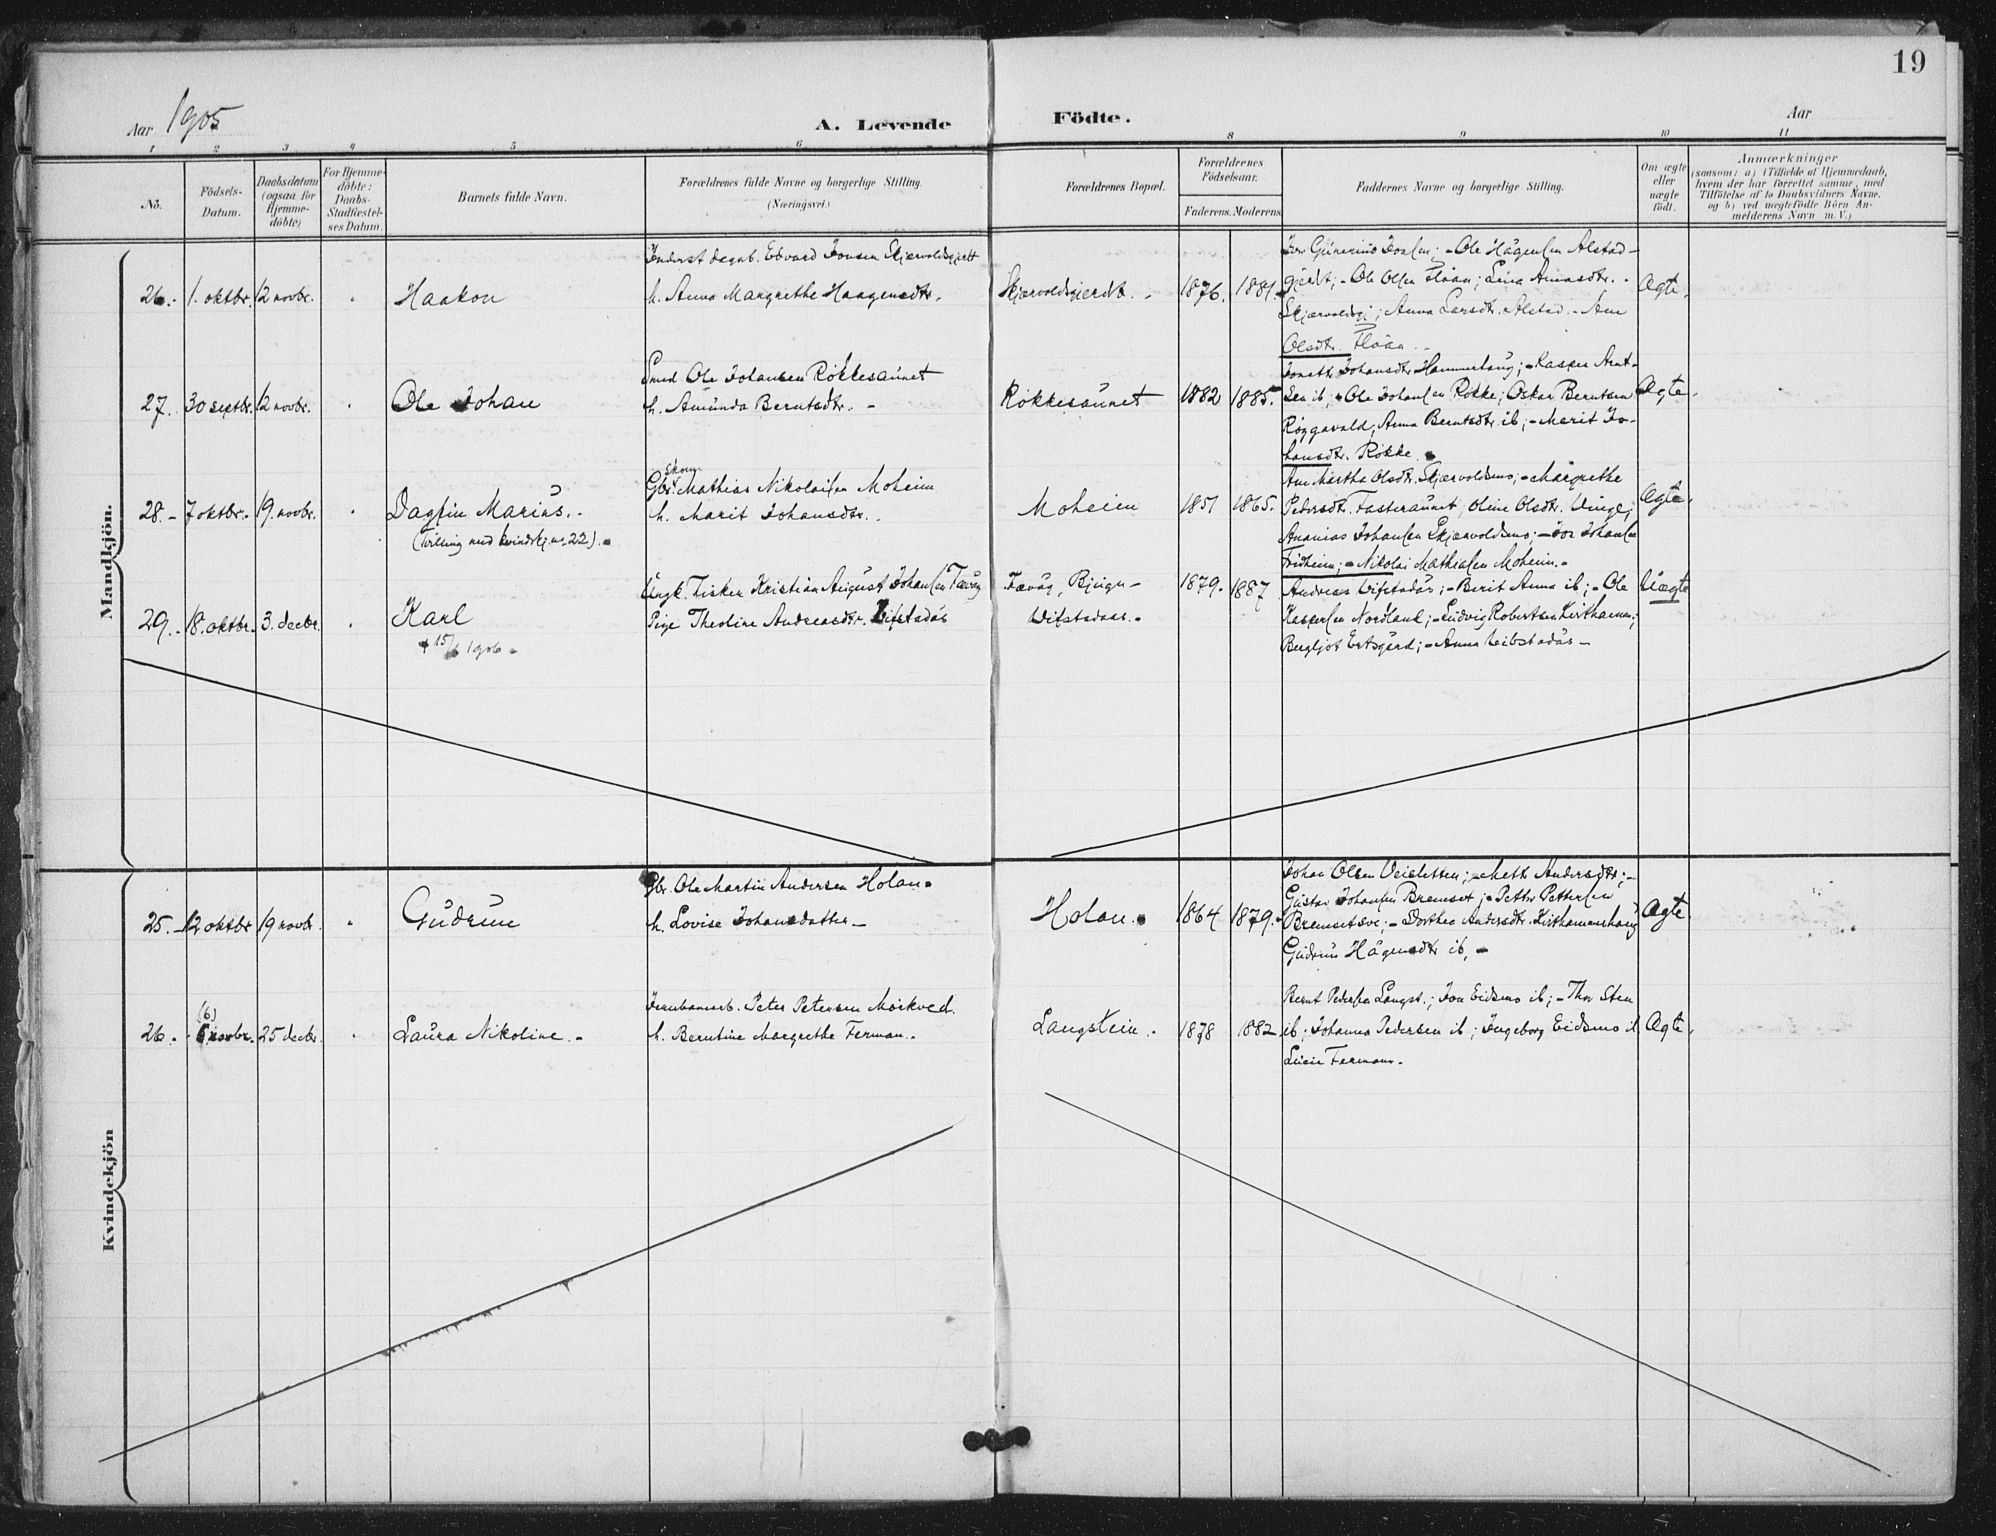 19
Aar 1905
A. Levende
Födte.
Aar
1 2 3 4 5 6 8 9 10 11
No.
Födsels-
Datum.
Daabsdatum
(ogsaa for
Hjemme-
döbte)
For Hjemme-
döbte:
Daabs-
Stadfæstel-
ses Datum.
Barnets fulde Navn.
Forældrenes fulde Navne og borgerlige Stilling.
(Næringsvei.)
Forældrenes Bopæl.
Forældrenes
Födselsaar.
Faderens. Moderens.
Faddernes Navne og borgerlige Stilling.
Om ægte
eller
uægte
födt.
Anmærkninger
(saasom: a) i Tilfælde af Hjemmedaab,
hvem der har forrettet samme, med
Tilföielse af to Daabsvidners Navne.
og b) ved uægtefödte Börn An-
melderens Navn m. V.)
Mandkjön.
26.- 1. oktbr. 12 novbr. " Haakon
Inderst dagarb. Edvard Jonsen Skjærvoldsgjerdt
h. Anna Margrethe Haagensdtr.
Skjærvoldsgjerdt. - 1876. 1881.
Gunerius Jonsen; - Ole Hågensen Alstad-
gjerdt; - Ole Olsen Flöan; Lina Arnasdtr. -
Skjærvoldsgj; Anna Larsdtr. Alstad. - Ane
Olsdtr. Flöan. -
Ægte.
27. 30 septbr. 12 novbr. " Ole Johan
Smed Ole Johansen Rökkesaunet
h. Amunda Berntsdtr. -
Rökkesaunet 1882 1885.
Joneth. Johansdtr. Hammerhaug; - Kasper Arnt-
sen ib; - Ole Johansen Rökke; Oskar Berntsen
Röggavald; Anna Berntsdtr. ib; - Marit Jo-
hansdtr. Rökke.
Ægte.
28.- 7 oktbr. - 19. novbr. " Dagfin Marius. -
(Tvilling med kvindekj. no. 22). -
skom.
Gbr. Mathias Nikolaisen Moheim
h. Marit Johansdtr. .
Moheim 1851 1865.
Ane Martha Olsdtr. Skjærvoldsmo; - Margrethe
Pedersdtr. Fasteraunet, Oline Olsdtr. Vinge;
Ananias Johansen Skjærvoldsmo; - Jon Johansen
Fridheim; - Nikolai Mathiasen Moheim. -
Ægte.
29.- 18. oktbr. 3. decbr. " Karl
+ 15/6 1906 -
Ungk. Fisker Kristian August Johansen Tævåg
Pige Theoline Andreasdtr. Vifstadås
Tævåg, Bjugn -
Vifstadaas. - 1879. 1887
Andreas Vifstadås; - Berit Anna ib; - Ole
Kaspersen Nordlund; - Ludvig Robertsen Kirkhamn;
Bergljot Ertsgård; - Anna Veibstadås -
Uægte
Kvindekjön
25.- 12 oktbr 19 novbr. " Gudrun
Gbr. Ole Martin Andersen Holan -
h. Lovise Johansdatter -
Holan. 1864 1879.
Johan Olsen Veisletten; - Meth Andersdtr; -
Gustav Johansen Bremset; - Petter Pettersen
Bremsetöve; - Dorthea Andersdtr. Kirkhammerhaug
Gudrun Hågensdtr ib. -
Ægte.
(6)
26.- 6 novbr. 25 decbr. " Laura Nikoline. -
Jernbanearb. Peter Petersen Mörkved.
h. Berntine Margrethe Ferman. -
Langstein. . 1878 1882
Bernt Pedersen Langst.; Jon Eidsmo ib; - Thor Sten
ib; Johanna Pedersen ib; Ingeborg Eidsmo ib
Lucie Fermann. -
Ægte.